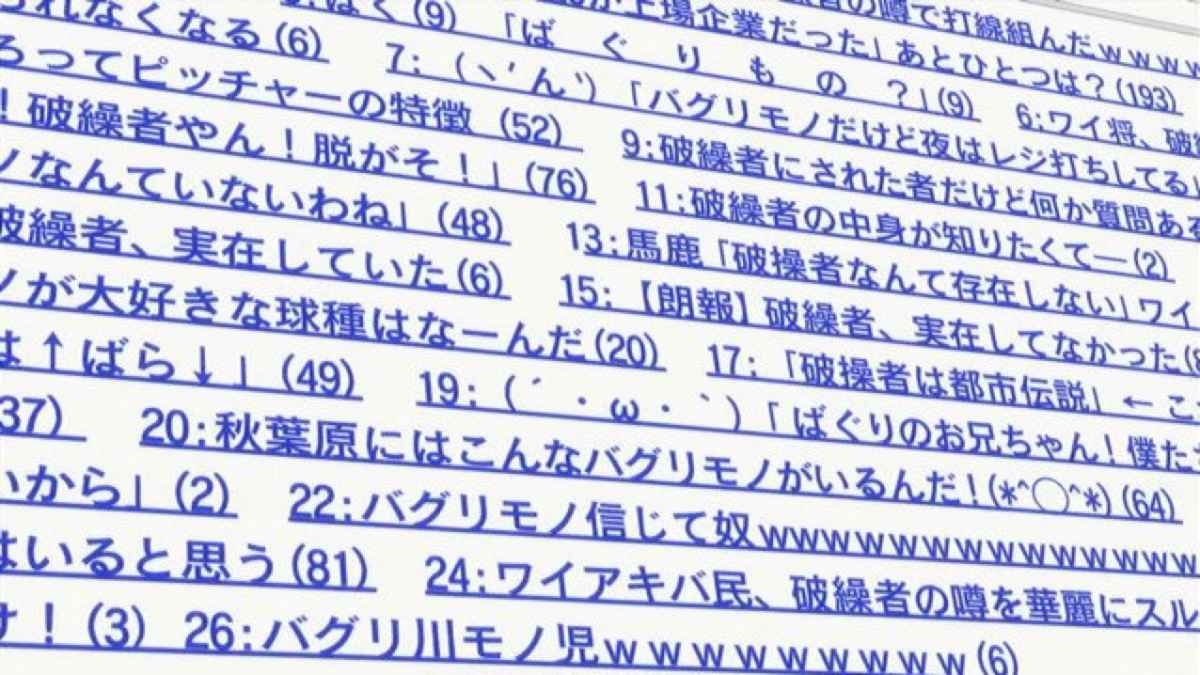 られなくなる(6) 5:ばく(9) 「 が上場企業だった」あとひとつは?(193)
ろってピッチャーの特徴 (52) 7: (ヽ'ん`) 「ば ぐ り も の ?」(9) 6:ワイ将、破繰者の噂で打線組んだwwww
!破繰者やん!脱がそ!」(76) 9:破繰者にされた者だけど何か質問ある 「バグリモノだけど夜はレジ打ちしてる
ノなんていないわね」(48) 11:破繰者の中身が知りたくて―(2)
破繰者、実在していた(6) 13:馬鹿「破操者なんて存在しない」ワイ
ノが大好きな球種はなーんだ(20) 15:【朗報】破繰者、実在してなかった(8
は↑ばら↓」(49) 17:「破操者は都市伝説」←こ
37) 19:(´・ω・`)「ばぐりのお兄ちゃん!僕た
いから」(2) 20:秋葉原にはこんなバグリモノがいるんだ!(*^◯^*)(64)
はいると思う(81) 22:バグリモノ信じて奴wwwwwwwwwwwww
す!(3) 24:ワイアキバ民、破繰者の噂を華麗にスル
26:バグリ川モノ児wwwwwwwwww(6)